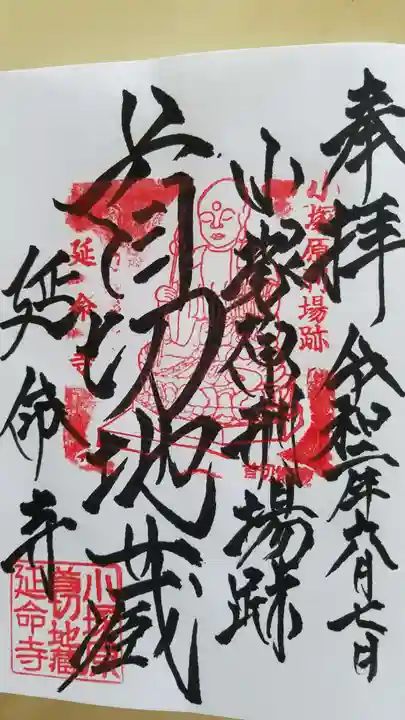 奉拝
令和二年六月七日
小塚原刑場跡
首切地蔵
延命寺
小塚原刑場跡
延命寺
首切地蔵
小塚原
首切地蔵
延命寺